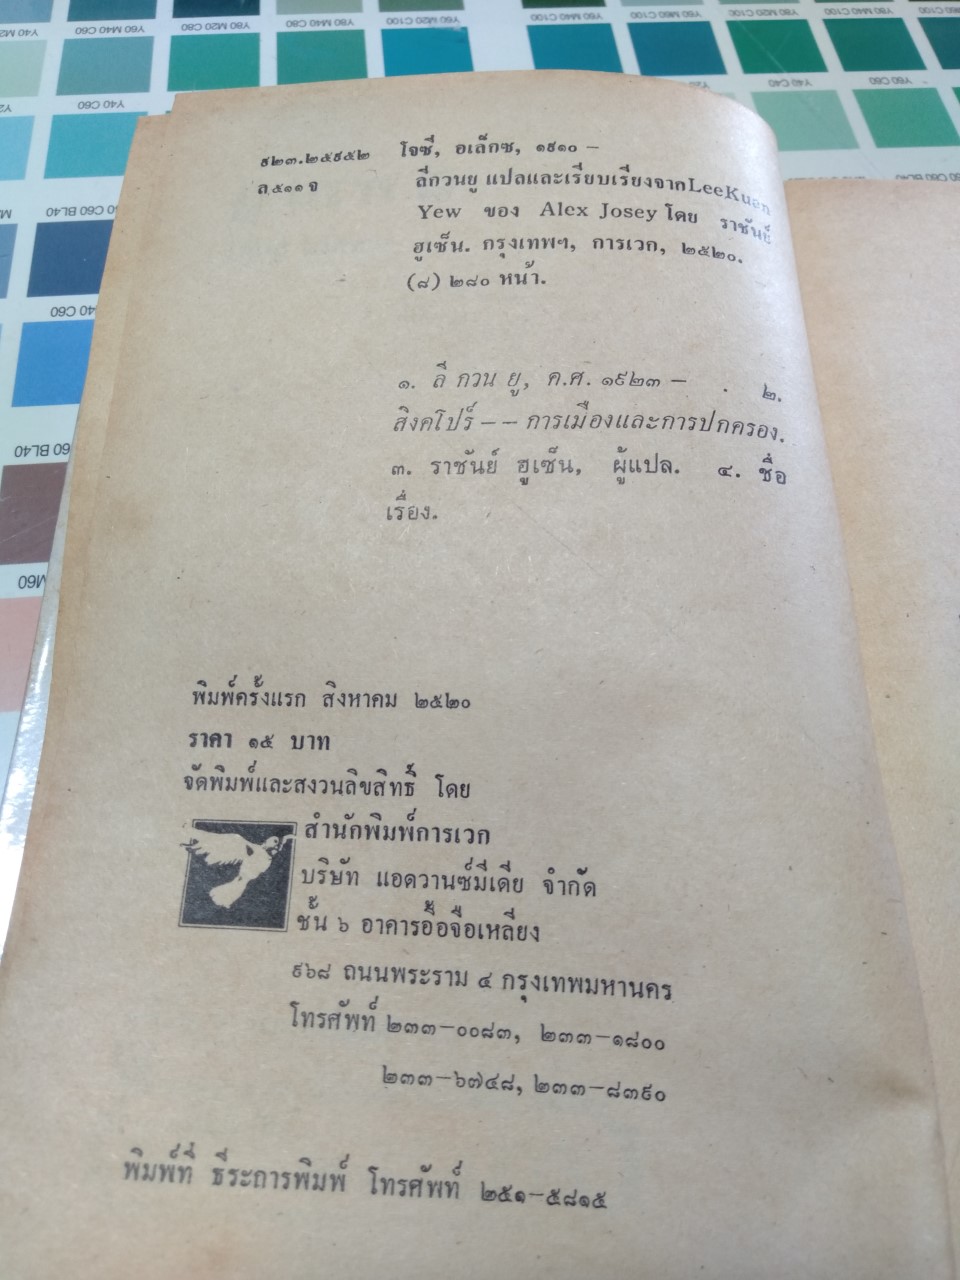 ๙๒๓.๒๕๙๕๒ โจซี, อเล็กซ, ๑๙๑๐ –
ล๕๑๑จ ลีกวนยู แปลและเรียบเรียงจากLeeKuan
Yew ของ Alex Josey โดย ราชันย์
ฮูเซ็น. กรุงเทพฯ, การเวก, ๒๕๒๐.
(๘) ๒๘๐ หน้า.
๑. ลี กวน ยู, ค.ศ. ๑๙๒๓ – . ๒.
สิงคโปร์ – – การเมืองและการปกครอง.
๓. ราชันย์ ฮูเซ็น, ผู้แปล. ๔. ชื่อ
เรื่อง.
พิมพ์ครั้งแรก สิงหาคม ๒๕๒๐
ราคา ๑๕ บาท
จัดพิมพ์และสงวนลิขสิทธิ์ โดย
สำนักพิมพ์การเวก
บริษัท แอดวานซ์มีเดีย จำกัด
ชั้น ๖ อาคารอื้อจือเหลียง
๙๖๘ ถนนพระราม ๔ กรุงเทพมหานคร
โทรศัพท์ ๒๓๓–๐๐๘๓, ๒๓๓–๑๘๐๐
๒๓๓–๖๗๔๘, ๒๓๓–๘๓๙๐
พิมพ์ที่ ธีระการพิมพ์ โทรศัพท์ ๒๕๑–๕๘๑๕